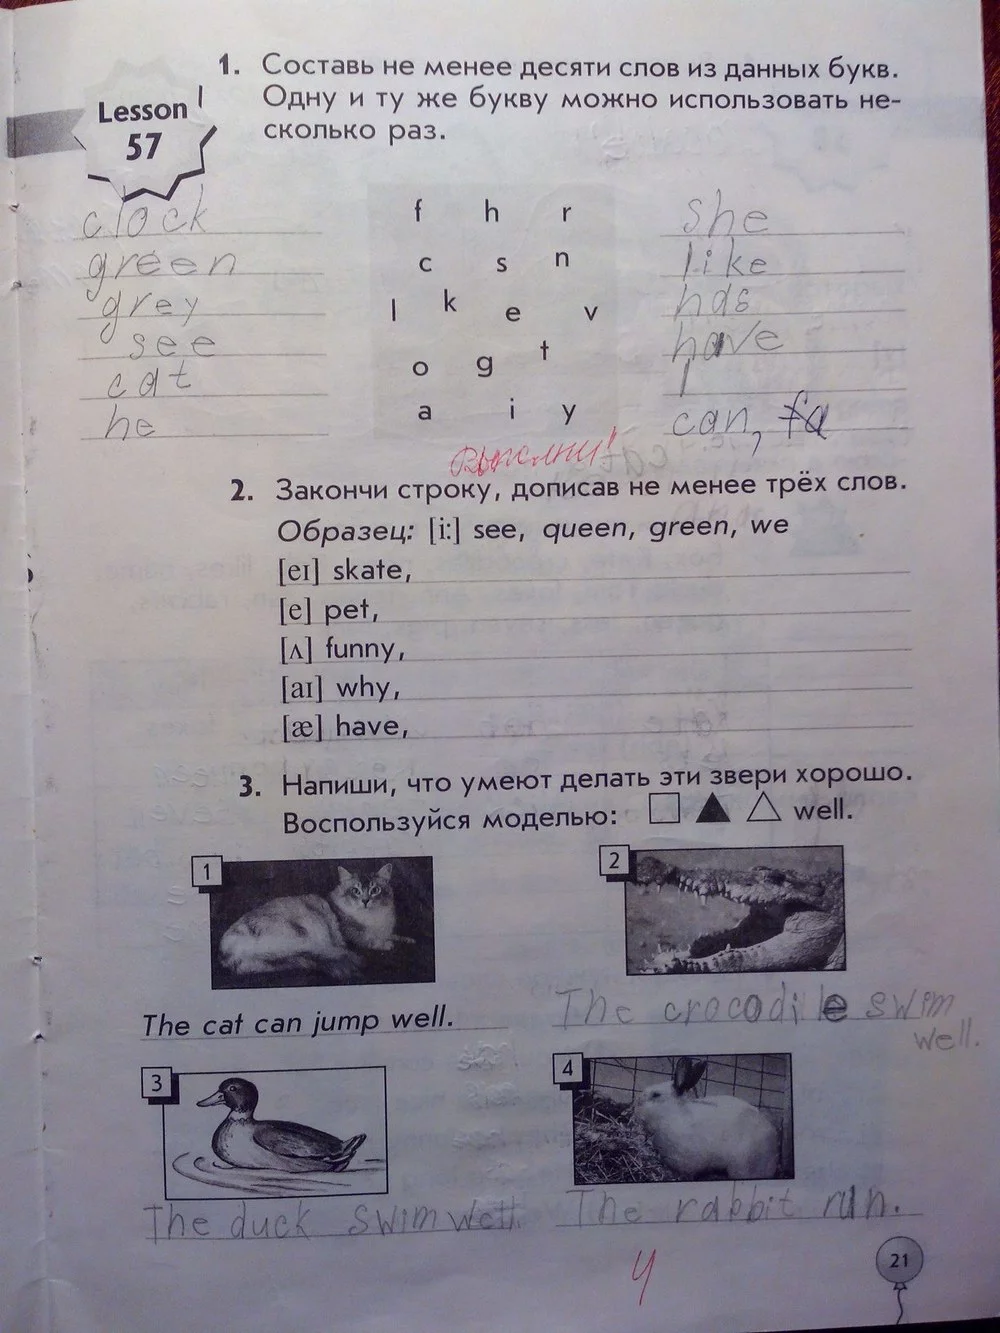 Lesson 57
1. Составь не менее десяти слов из данных букв.
Одну и ту же букву можно использовать не-
сколько раз.
clock
green
grey
see
cat
he
f h r
c s n
l k e v
o g t
a i y
she
like
has
have
I
can, fa
Выполни!
2. Закончи строку, дописав не менее трёх слов.
Образец: [i:] see, queen, green, we
[eɪ] skate,
[e] pet,
[ʌ] funny,
[aɪ] why,
[æ] have,
3. Напиши, что умеют делать эти звери хорошо.
Воспользуйся моделью: □ ▲ △ well.
1
2
The cat can jump well.
The crocodile swim
well.
3
4
The duck swim well.
The rabbit run.
4
21